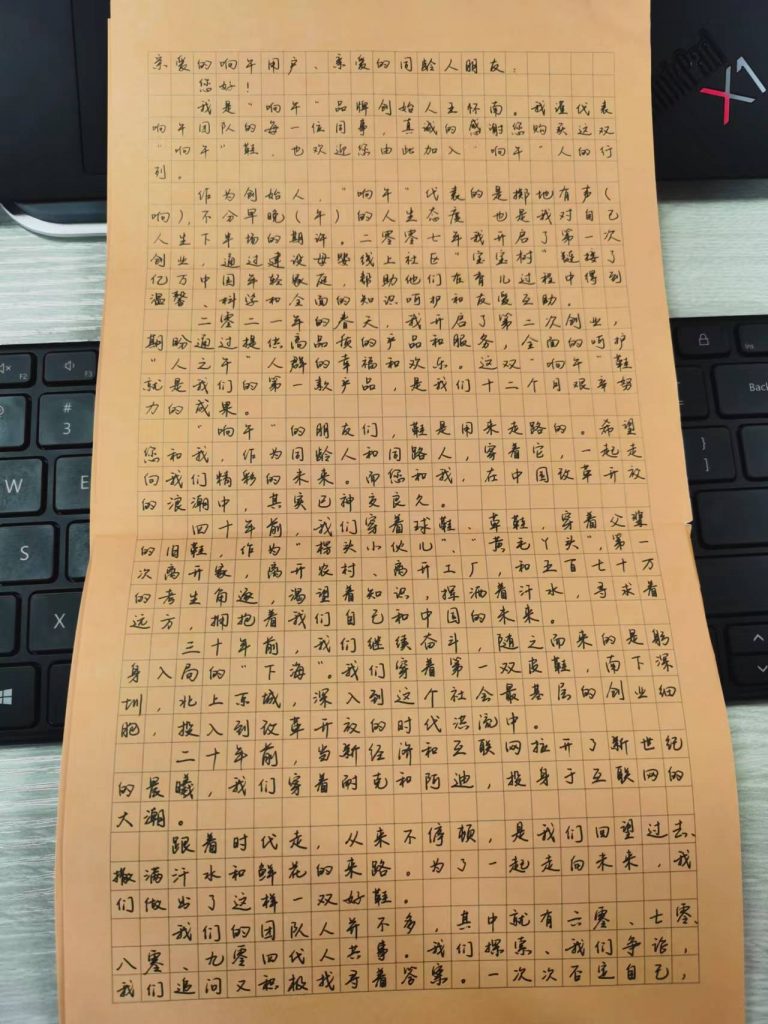 亲爱的响午用户、亲爱的同龄人朋友:
您好!
我是"响午"品牌创始人王怀南。我谨代表
响午团队的每一位同事,真诚的感谢您购买这双
"响午"鞋,也欢迎您由此加入"响午"人的行
列。
作为创始人,"响午"代表的是掷地有声(
响),不分早晚(午)的人生态度 也是我对自己
人生下半场的期许。二零零七年我开启了第一次
创业,通过建设母婴线上社区"宝宝树"链接了
亿万中国年轻家庭,帮助他们在育儿过程中得到
温馨、科学和全面的知识呵护和友爱互助。
二零二一年的春天,我开启了第二次创业,
期盼通过提供高品质的产品和服务,全面的呵护
"人之午"人群的幸福和欢乐。这双"响午"鞋
就是我们的第一款产品,是我们十二个月艰辛努
力的成果。
"响午"的朋友们,鞋是用来走路的。希望
您和我,作为同龄人和同路人,穿着它,一起走
向我们精彩的未来。而您和我,在中国改革开放
的浪潮中,其实已神交良久。
四十年前,我们穿着球鞋、草鞋,穿着父辈
的旧鞋,作为"楞头小伙儿"、"黄毛丫头",第一
次离开家,离开农村、离开工厂,和五百七十万
的考生角逐,渴望着知识,挥洒着汗水,寻求着
远方,拥抱着我们自己和中国的未来。
三十年前,我们继续奋斗,随之而来的是躬
身入局的"下海"。我们穿着第一双皮鞋,南下深
圳,北上京城,深入到这个社会最基层的创业细
胞,投入到改革开放的时代洪流中。
二十年前,当新经济和互联网拉开了新世纪
的晨曦,我们穿着耐克和阿迪,投身于互联网的
大潮。
跟着时代走,从来不停顿,是我们回望过去、
撒满汗水和鲜花的来路。为了一起走向未来,我
们做出了这样一双好鞋。
我们的团队人并不多,其中就有六零、七零、
八零、九零四代人共事。我们探索、我们争论,
我们追问又积极找寻着答案。一次次否定自己,
ThinkPad
X1
# 3
W
E
S
X
F1
F2
Ins
Back